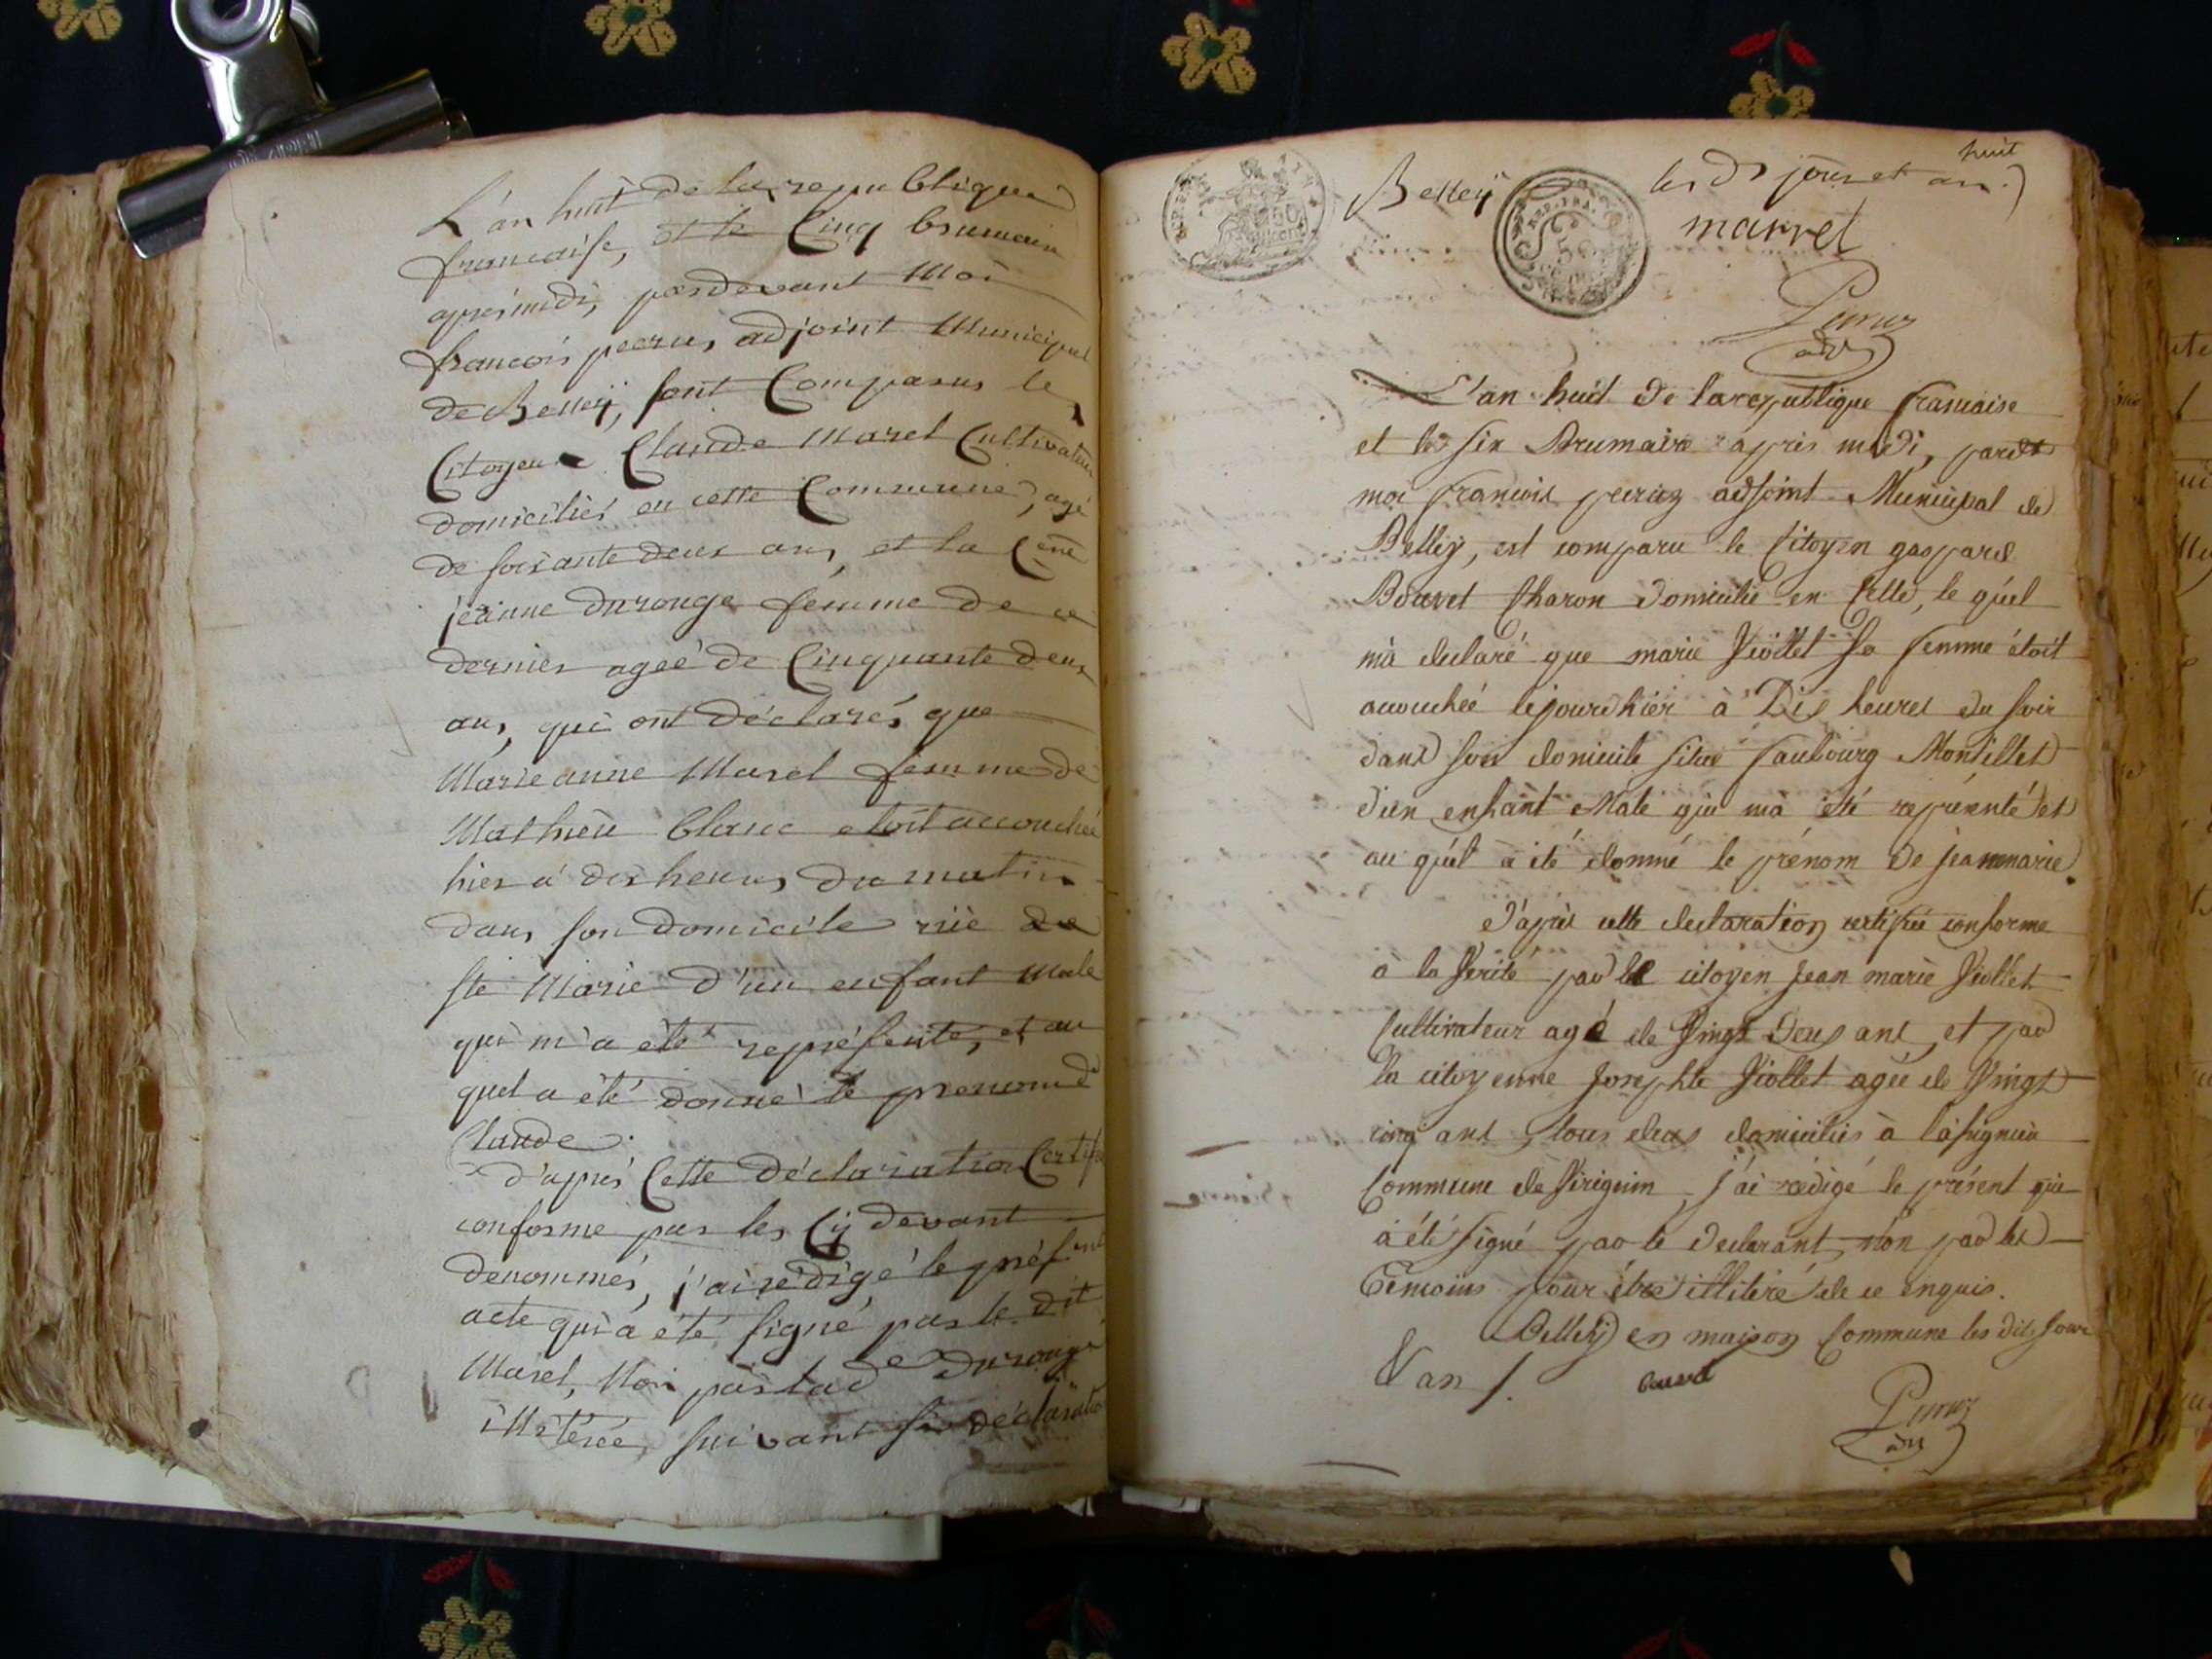 L'an huit de la republique
francaise, et le Cinq brumaire
apres midi, pardevant Moi
francois peeru, adjoint Municipal
de Belleÿ, sont Comparus le
Citoyen Claude Marel Cultivateur
domiciliés en cette Commune, agé
de soixante deux ans, et la Cene
jeanne Durouge femme de ce
dernier ageé de Cinquante deux
ans, qui ont déclarés que
Marie anne Marel femme de
Mathieu blanc etoit accouchée
hier a dix heures du matin
dans son domicile rüe de
ste Marie d'un enfant Male
qui m'a èté représenté, et au
quel a èté donné le prenom de
Claude.
d'aprés Cette déclaration Certifié
conforme par les Cÿ devant
denommés, j'ai rédigé le présent
acte qui a été signé par le dit
Marel, Non par lad e Durouge
illitérée, suivant sa déclaration
Belleÿ les ds jour et an huit
REP. FRA.
50
marrel
Peruz
adj
L'an huit de la republique francaise
et le six Brumaire apres midi, pardt
moi francois peeruz adjoint Municipal de
Belleÿ, est comparu le Citoyen gaspard
Bouvet Charon domicilié en Celle, le quel
m'à declaré que marie Viollet sa femme étoit
accouchée le jourd'hier à Dix heures du soir
dans son domicile situé faubourg Montillet
d'un enfant Male qui m'à été représenté et
au quel à été donné le prénom de jeanmarie.
D'après cette declaration certifié conforme
à la Vérité par le citoyen Jean marie Viollet
Cultivateur agé de Vingt Deux ans, et par
la citoyenne Josephte Viollet agée de Vingt
cinq ans, tous deux domiciliés à
Commune de Virignin, j'ai rédigé le présent qui
à été signé par le declarant, non par les
Témoins pour être illiteré de ce enquis.
Belleÿ en maison Commune les dits jour
& an /. Bouvet
Peruz
adj